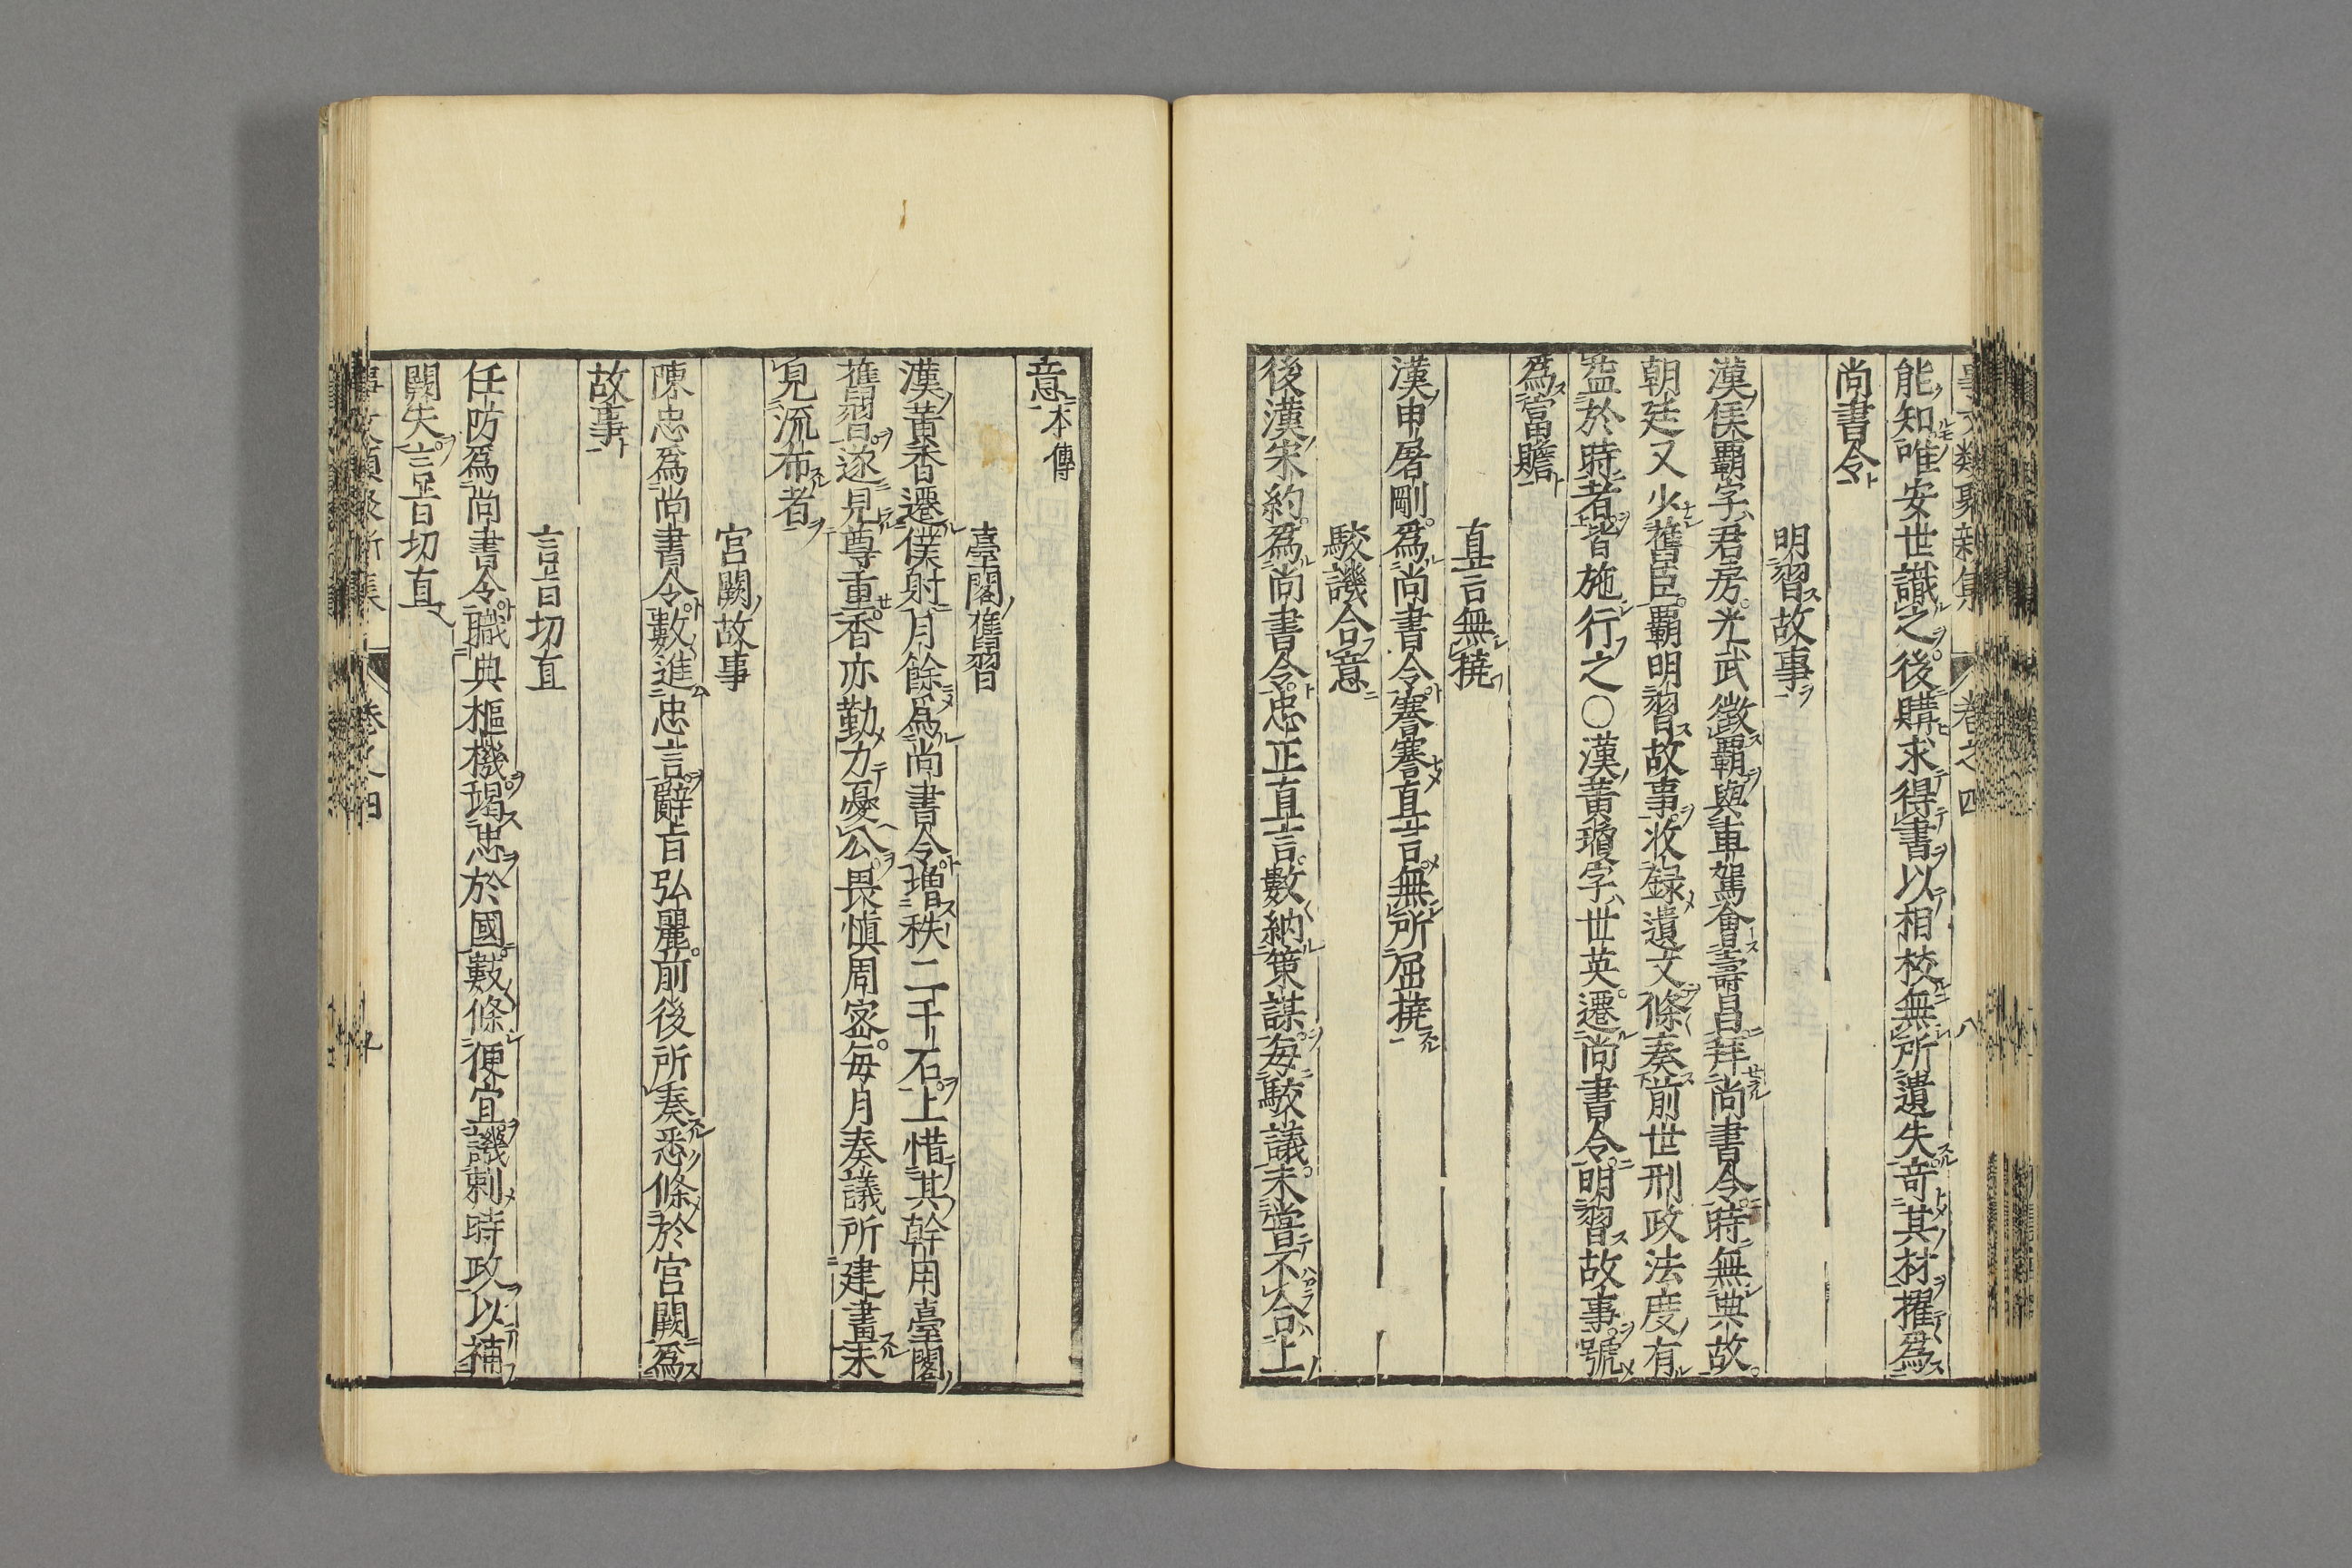 能知唯安世識之後購求得書以相校無所遺失竒其材擢爲
尚書令
明習故事
漢侯覇字君房光武徵覇與車駕會壽昌拜尚書令時無典故
朝廷又少舊臣覇明習故事收録遺文條奏前世刑政法度有
益於時者皆施行之〇漢黄瓊字世英遷尚書令明習故事號
爲富贍
直言無撓
漢申屠剛爲尚書令謇謇直言無所屈撓
駮議合意
後漢宋約爲尚書令忠正直言數納策謀毎駮議未嘗不合上
意本傳
臺閣舊習
漢黄香遷僕射月餘爲尚書令増秩二千石上惜其幹用臺閣
舊習遂見尊重香亦勤力憂公畏慎周宻毎月奏議所建畫未
見流布者
宮闕故事
陳忠爲尚書令數進忠言辭旨弘麗前後所奏悉條於宮闕爲
故事
言旨切直
任防爲尚書令職典樞機竭忠於國數條便宜譏刺時政以補
闕失言旨切直